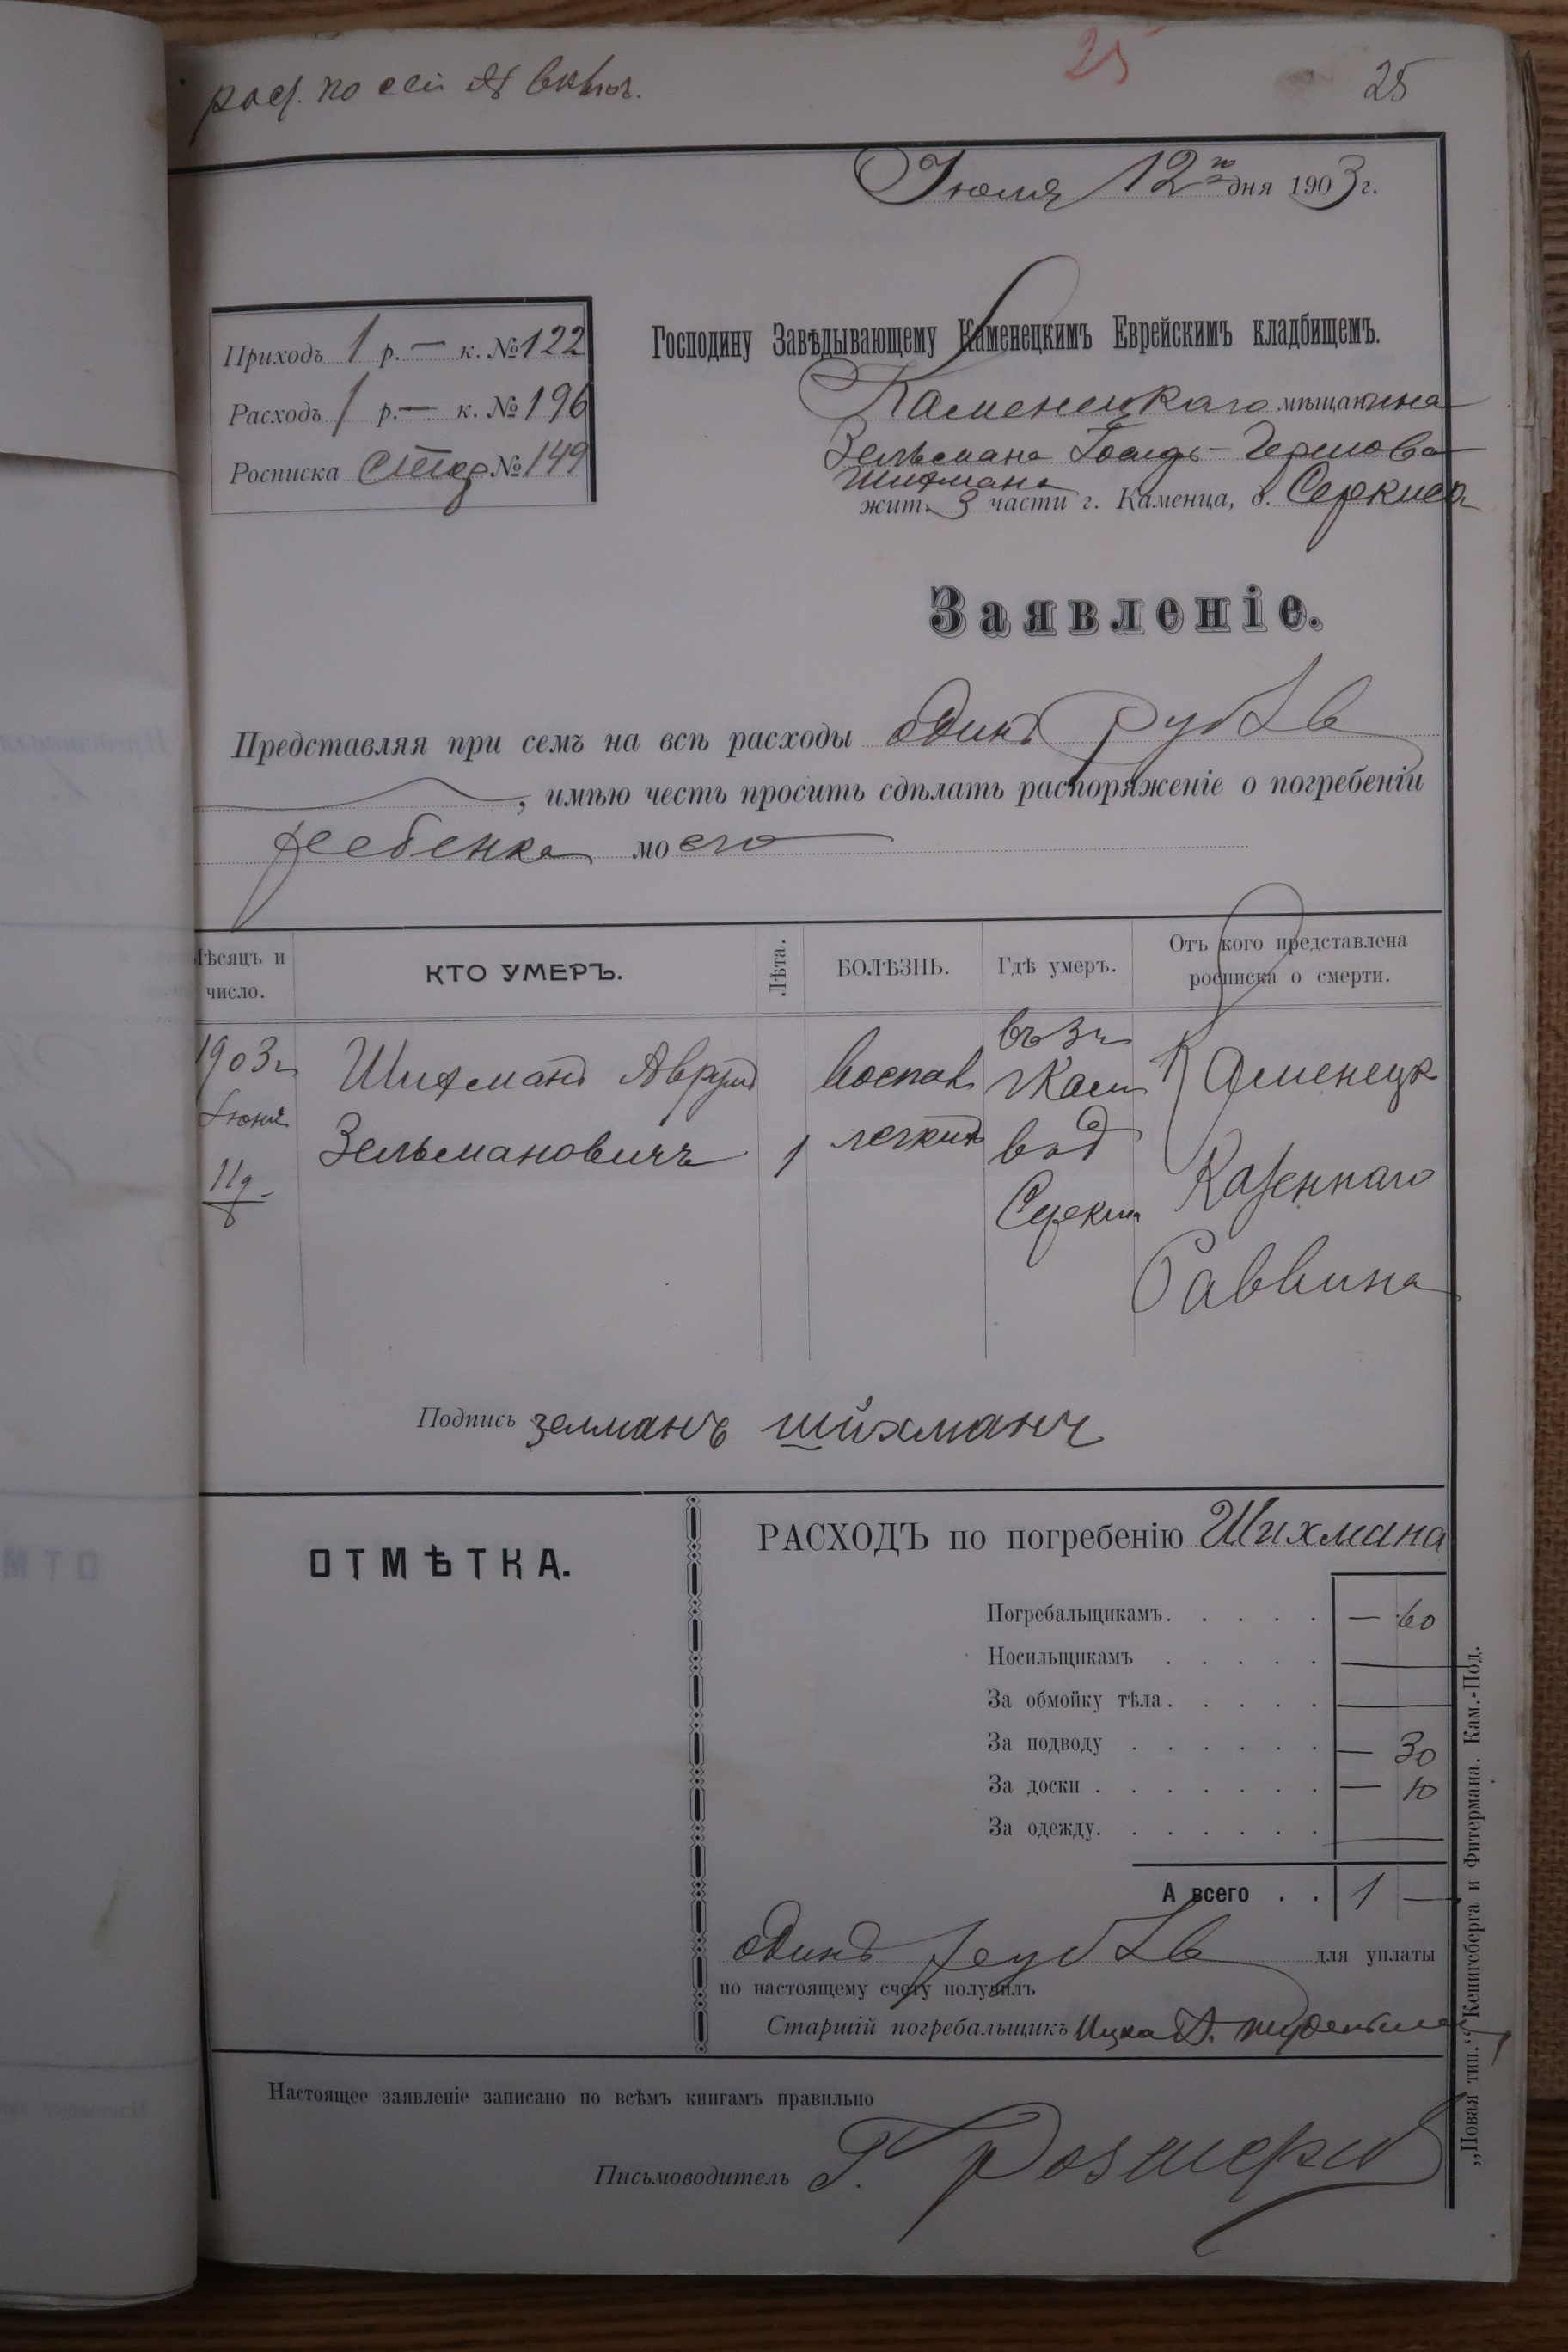 25
25
Іюля 12го дня 1903 г.
Приходъ 1 р. — к. № 122
Расходъ 1 р. — к. № 196
Росписка № 149
Господину Завѣдывающему Каменецкимъ Еврейскимъ кладбищемъ.
Каменецкаго мѣщанина
Зельмана
Шихмана
жит. 3 части г. Каменца, д. Серкиса
Заявленіе.
Представляя при семъ на всѣ расходы одинъ рубль
, имѣю честь просить сдѣлать распоряженіе о погребеніи
ребенка моего
Мѣсяцъ и число.
КТО УМЕРЪ.
Лѣта.
БОЛѢЗНЬ.
Гдѣ умеръ.
Отъ кого представлена росписка о смерти.
1903 г
11
Шихманъ Аврумъ
Зельмановичъ
1
воспал
легкихъ
въ 3 ч
г Кам
в д
Серкиса
Каменецк
Казеннаго
Раввина
Подпись зелманъ шихманъ
ОТМѢТКА.
РАСХОДЪ по погребенію Шихмана
Погребальщикамъ. . . . . — 60
Носильщикамъ . . . . . —
За обмойку тѣла. . . . . —
За подводу . . . . . . — 30
За доски . . . . . . . — 10
За одежду. . . . . . . —
А всего . . 1 —
одинъ рубль для уплаты
по настоящему счету получилъ
Старшій погребальщикъ Ицко
Настоящее заявленіе записано по всѣмъ книгамъ правильно
Письмоводитель Г.
„Новая тип.“ Кенигсберга и Фитермана. Кам.-Под.